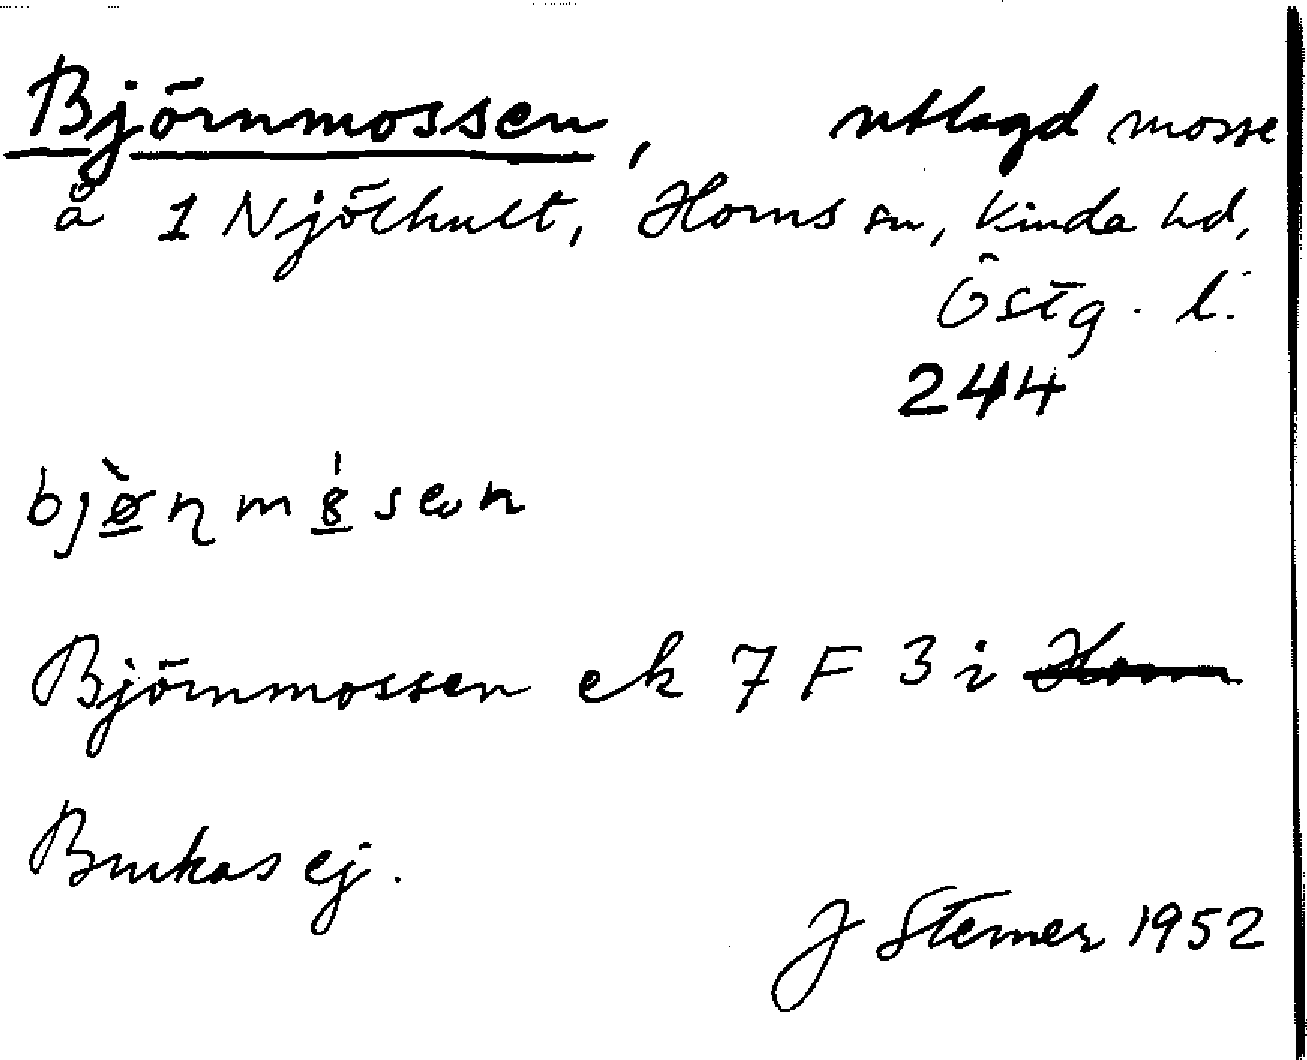 Björnmossen, utlagd mosse
å 1 Njölhult, Horns sn, Kinda hd,
Östg. l.
244
Björnmossen ek 7 F 3 i ~~Horn~~
Brukas ej.
J Sterner 1952